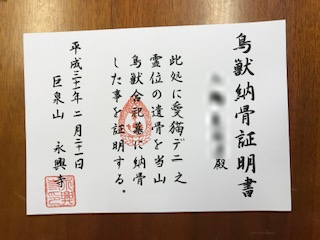 鳥獣納骨証明書
殿
此処に愛猫デニ之
霊位の遺骨を当山
鳥獣合祀墓に納骨
した事を証明する。
平成三十一年二月二十一日
巨泉山 永興寺